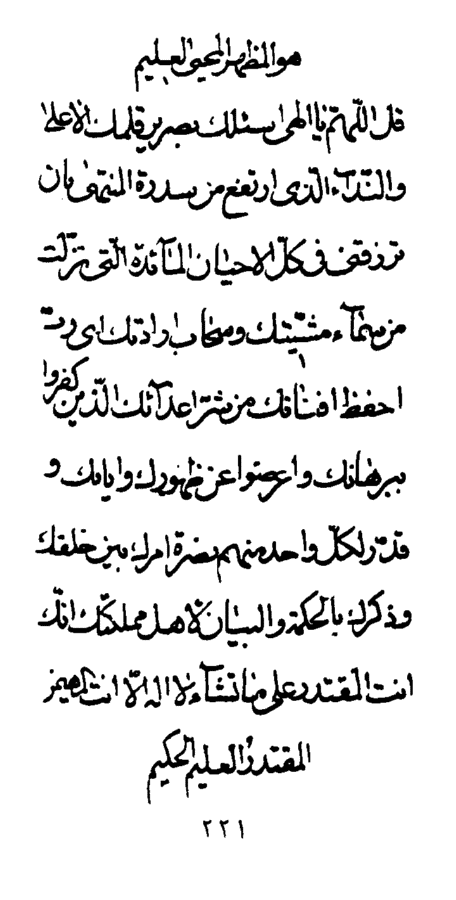 هو المظهر المحيى العليم
قل اللّهمّ يا الهى اسئلك بصرير قلمك الاعلى
والنّدآء الّذى ارتفع من سدرة المنتهى بان
ترزقنى فى كلّ الاحيان المآئدة الّتى نزّلت
من سمآء مشيّتك و سحاب ارادتك اى ربّ
احفظ افنانك من شرّ اعدآئك الّذين كفروا
ببرهانك و اعرضوا عن ظهورك و اياتك و
قدّر لكلّ واحد منهم نصرة امرك بين خلقك
و ذكرك بالحكمة و البيان لاهل مملكتك انّك
انت المقتدر على ما تشآء لا اله الّا انت المهيمن
المقتدر العليم الحكيم
٢٢١